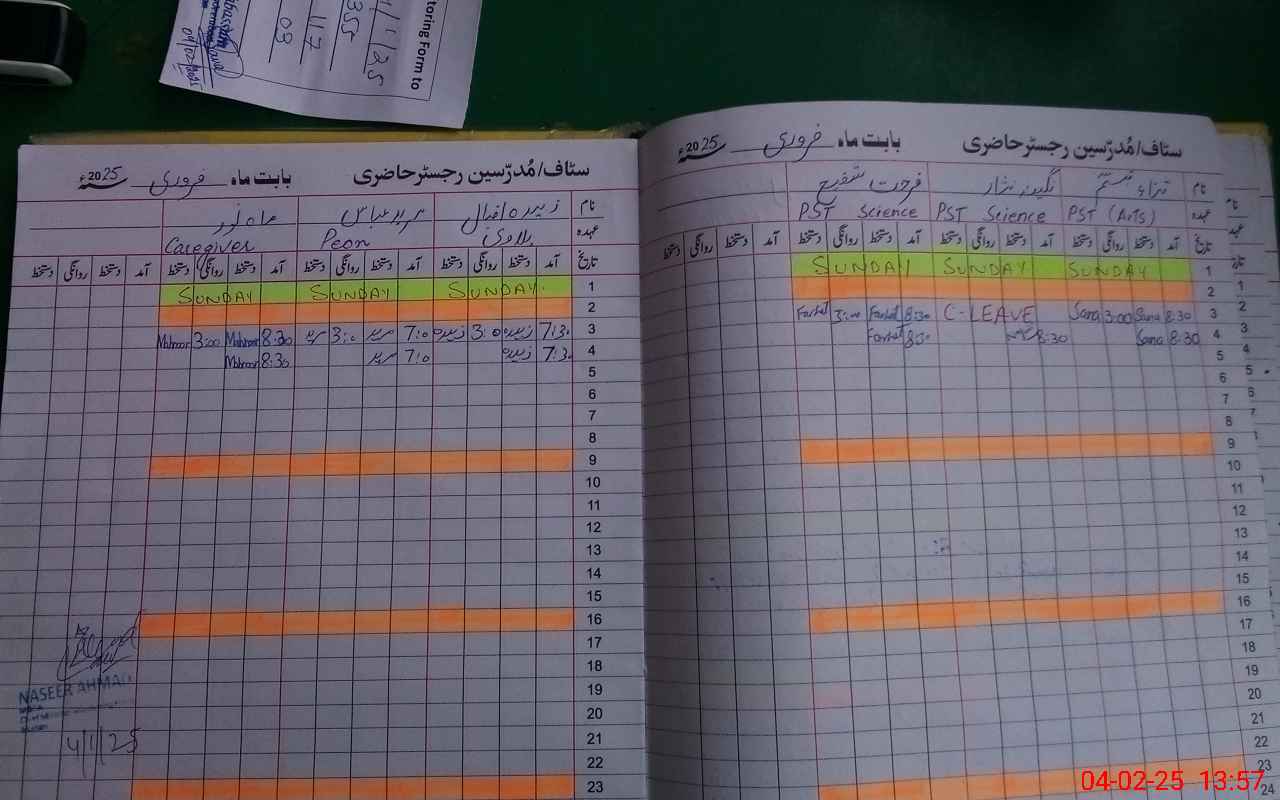 toring Form to
1/1/25
355
117
09
04/02/2025
سٹاف/مُدرّسین رجسٹرحاضری بابت ماہ فروری 2025ء
نام زبیدہ اقبال ماہ نور
عہدہ Peon Caregiver
تاریخ آمد دستخط روانگی دستخط آمد دستخط روانگی دستخط آمد دستخط روانگی دستخط آمد دستخط روانگی دستخط
1 SUNDAY SUNDAY SUNDAY
2
3 7:30 زبیدہ 3:0 زبیدہ 7:0 3:0 8:30 Mahnoor 3:00 Mahnoor
4 7:30 زبیدہ 7:0 8:30 Mahnoor
5
6
7
8
9
10
11
12
13
14
15
16
17
18
19
20
21
22
23
NASEER AHMAD
4/1/25
سٹاف/مُدرّسین رجسٹرحاضری بابت ماہ فروری 2025ء
نام فرحت شفیع
عہدہ PST (Arts) PST Science PST Science
تاریخ آمد دستخط روانگی دستخط آمد دستخط روانگی دستخط آمد دستخط روانگی دستخط آمد دستخط روانگی دستخط
1 SUNDAY SUNDAY SUNDAY
2
3 8:30 Sana 3:00 Sana C-LEAVE 8:30 Farhat 3:00 Farhat
4 8:30 Sana 8:30 8:30 Farhat
5
6
7
8
9
10
11
12
13
14
15
16
17
18
19
20
21
22
23
24
04-02-25 13:57